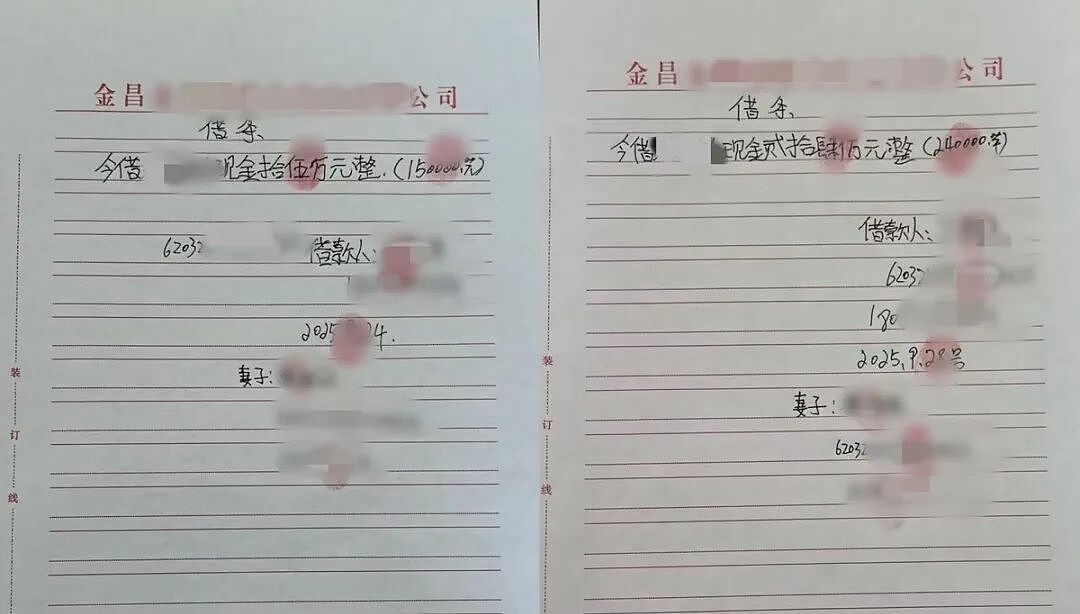 金昌 公司
借条
今借 现金拾伍万元整.(150000.元)
62032 借款人:
2025 24.
妻子:
装
订
线
金昌 公司
借条
今借 现金贰拾肆万元整(240000.元)
借款人:
62032
180
2025.9.28号
妻子:
62032
装
订
线